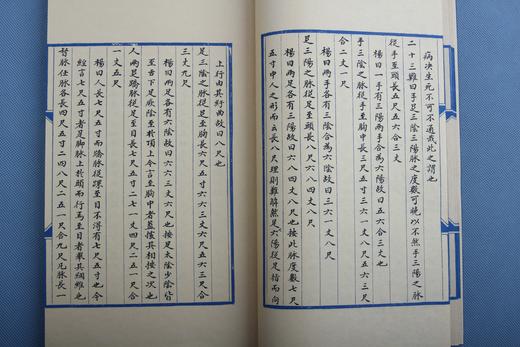 病決生死不可不通哉此之謂也
二十三難曰手足三陰三陽脉之度數可曉以不然手三陽之脉
從手至頭長五尺五六合三丈
楊曰一手有三陽兩手合為六陽故曰五六三丈也
手三陰之脉從手至胸中長三尺五寸三六一丈八尺五六三尺
合二丈一尺
楊曰兩手各有三陰合為六陰故曰三六一丈八尺也
足三陽之脉從足至頭長八尺六八四丈八尺
楊曰兩足各有三陽故曰六八四丈八尺也按此脉度數七尺
五寸中人之形而云長八尺理則難解然足六陽從足指而向
上行由其紆曲故曰八尺也
足三陰之脉從足至胸長六尺五寸六六三丈六尺五六三尺合
三丈九尺
楊曰兩足各有六陰故曰六六三丈六尺也按足太陰少陰皆
至舌下足厥陰至於頂上今言至胸中者蓋據其相接之次也
人兩足蹻脉從足至目長七尺五寸二七一丈四尺二五一尺合
一丈五尺
楊曰人長七尺五寸而蹻脉從踝至目不得有七尺五寸也今
經言七尺五寸者是脚脉上於頭而行焉至目者舉其綱維也
督脉任脉各長四尺五寸二四八尺二五一尺合九尺凡脉長一